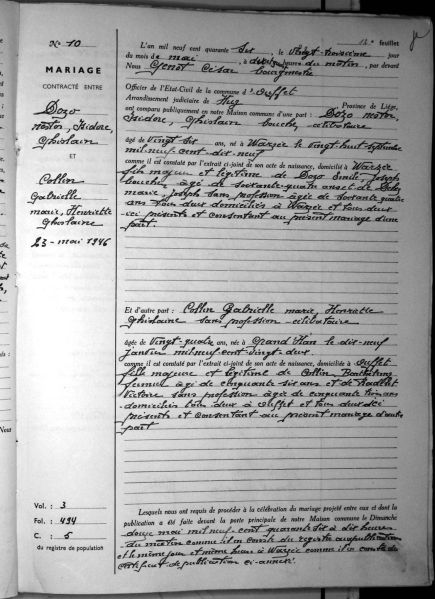 12e feuillet
No 10
MARIAGE
CONTRACTÉ ENTRE
Dozo
Nestor, Isidore,
Ghislain
ET
Collin
Gabrielle
Marie, Henriette
Ghislaine
23 - mai 1946
L'an mil neuf cent quarante six, le vingt-troisième jour
du mois de mai, à heures du matin, par devant
Nous Genot César bourgmestre
Officier de l'Etat-Civil de la commune d'Ouffet
Arrondissement judiciaire de Huy Province de Liége,
ont comparu publiquement en notre Maison commune d'une part : Dozo Nestor,
Isidore, Ghislain boucher, célibataire
âgé de vingt-six ans, né à Warzée le vingt huit septembre
mil-neuf-cent-dix-neuf
comme il est constaté par l'extrait ci-joint de son acte de naissance, domicilié à Warzée
fils majeur et légitime de Dozo Emile Joseph
boucher, âgé de soixante-quatre ans et de
Marie, Joseph sans profession âgée de soixante quatre
ans tous deux domiciliés à Warzée et tous deux
ici présents et consentant au présent mariage d'une
part.
Et d'autre part : Collin Gabrielle Marie Henriette
Ghislaine sans profession célibataire
âgée de vingt-quatre ans, née à Grand Han le dix-neuf
janvier mil-neuf-cent-vingt-deux.
comme il est constaté par l'extrait ci-joint de son acte de naissance, domiciliée à Ouffet
fille majeure et légitime de Collin
âgé de cinquante six ans et de
Victoire sans profession âgée de cinquante trois ans
domiciliés tous deux à Ouffet et tous deux ici
présents et consentant au présent mariage d'autre
part
Vol. : 3
Fol. : 494
C. : 5
du registre de population
Lesquels nous ont requis de procéder à la célébration du mariage projeté entre eux et dont la
publication a été faite devant la porte principale de notre Maison commune le Dimanche
douze mai mil-neuf-cent quarante six à dix heures
du matin comme il en conste du registre aux publications
et le même jour et même heure à Warzée comme il en conste du
certificat de publication ci-annexé.